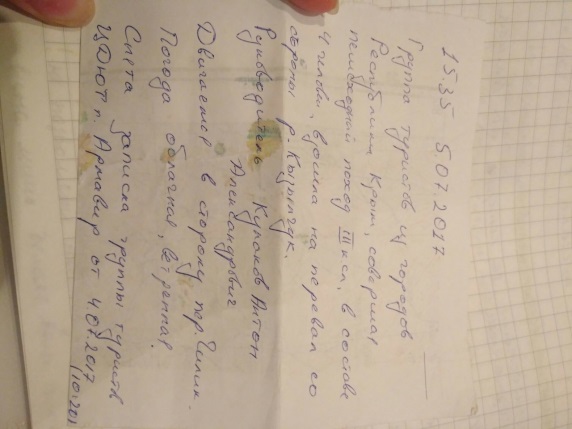 15.35 5.07.2017
Группа туристов из городов
Республики Крым, совершая
пешеходный поход III к.с., в составе
4 человек, взошла на перевал со
стороны р. Кызылчук.
Руководитель Кулаков Антон
Александрович
Двигаемся в сторону пер. Чилик.
Погода облачная, ветренная.
Снята записка группы туриств
ЦДЮТ г. Армавир от 4.07.2017